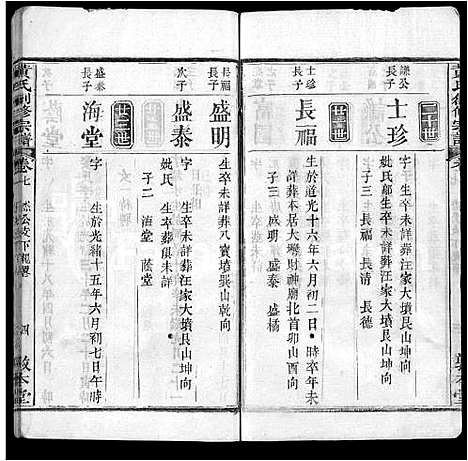 二十一世
謙公
長子
士珍
字 生卒未詳葬汪家大墳艮山坤向
妣氏鄒生卒未詳葬汪家大墳艮山坤向
子三 長福 長清 長德
士珍
長子
長福
生於道光十六年六月初二日 時卒年未
詳葬本居大灣財神廟北首卯山酉向
子三 盛明 盛泰 盛橘
長福
盛明
生卒未詳葬八寶墳巽山乾向
次子
盛泰
字 生卒未詳葬汪家大墳艮山坤向
妣氏 生卒葬俱未詳
子二 海堂 蔭堂
廿三世
盛泰
長子
海堂
字 生於光緒十五年六月初七日午時
黃氏創修宗譜
卷七
四
敦本堂